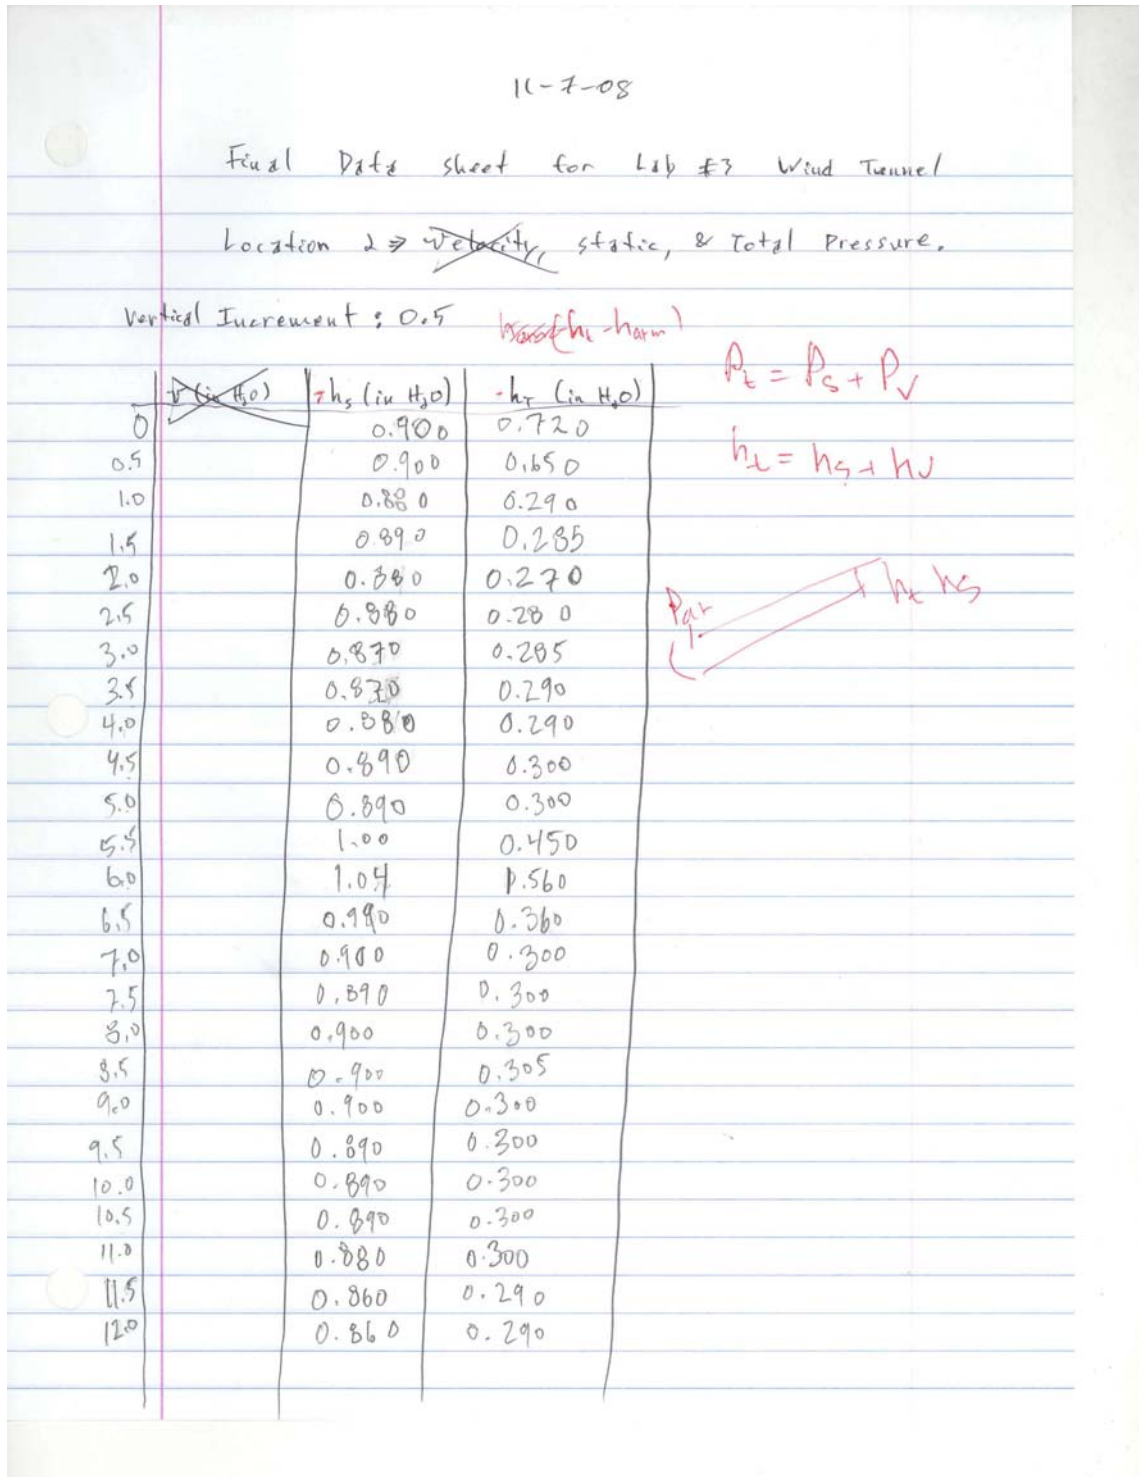 11-7-08
Final Data sheet for Lab #3 Wind Tunnel
Location 2 ⇒ Velocity, static, & Total Pressure.
Vertical Increment : 0.5
(ht - harm)
Pt = Ps + Pv
v (in H2O) -hs (in H2O) -hT (in H2O)
0 0.900 0.720
ht = hs + hv
0.5 0.900 0.650
1.0 0.880 0.290
1.5 0.890 0.285
2.0 0.880 0.270
2.5 0.880 0.280
ht hs
3.0 0.870 0.285
3.5 0.870 0.290
4.0 0.880 0.290
4.5 0.890 0.300
5.0 0.890 0.300
5.5 1.00 0.450
6.0 1.04 0.560
6.5 0.980 0.360
7.0 0.900 0.300
7.5 0.890 0.300
8.0 0.900 0.300
8.5 0.900 0.305
9.0 0.900 0.300
9.5 0.890 0.300
10.0 0.890 0.300
10.5 0.890 0.300
11.0 0.880 0.300
11.5 0.860 0.290
12.0 0.860 0.290